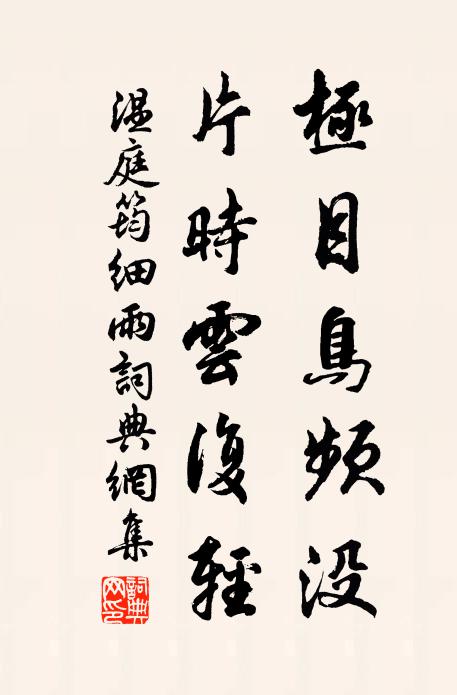 極目鳥頻没
片時雲復輕
温庭筠細雨詞典網集
詞典网印